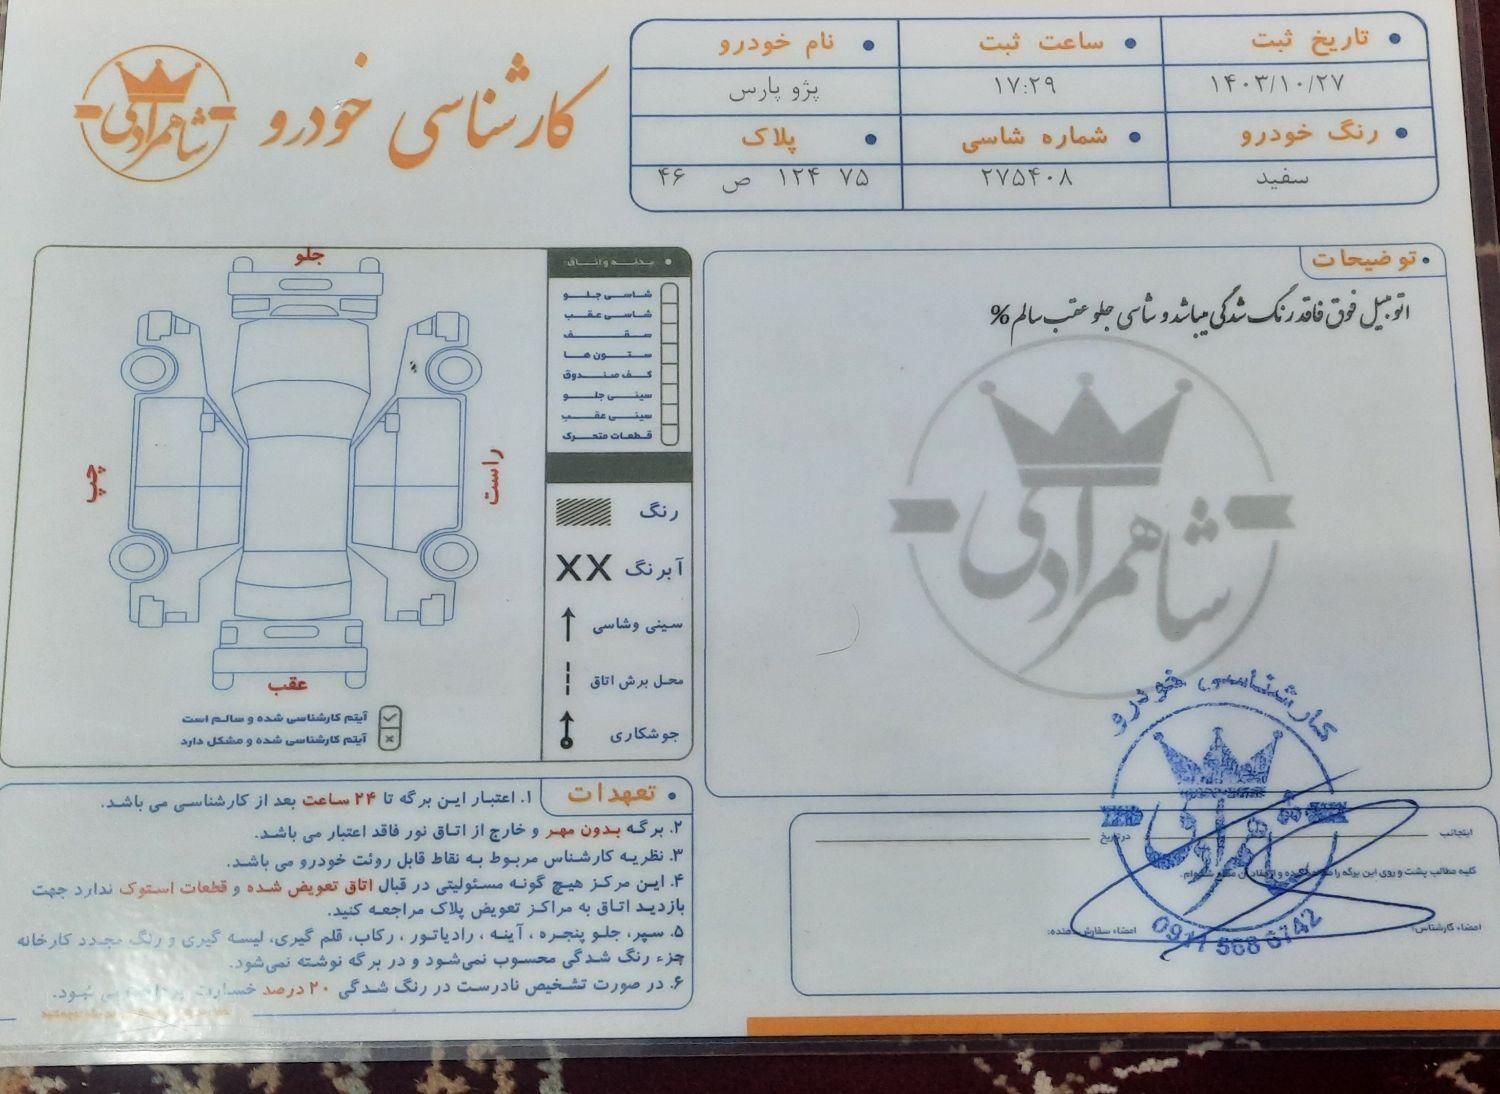 کارشناسی خودرو
شاهمرادی
تاریخ ثبت
ساعت ثبت
نام خودرو
۱۴۰۳/۱۰/۲۷
۱۷:۲۹
پژو پارس
رنگ خودرو
شماره شاسی
پلاک
سفید
۲۷۵۴۰۸
۷۵ ۱۲۴ ص ۴۶
توضیحات
اتومبیل فوق فاقد رنگ شدگی میباشد و شاسی جلو عقب سالم %
شاهمرادی
جلو
چپ
راست
عقب
آیتم کارشناسی شده و سالم است
آیتم کارشناسی شده و مشکل دارد
بدنه و اتاق:
شاسی جلو
شاسی عقب
سقف
ستون ها
کف صندوق
سینی جلو
سینی عقب
قطعات متحرک
رنگ
آبرنگ XX
سینی وشاسی
محل برش اتاق
جوشکاری
تعهدات
۱. اعتبار این برگه تا ۲۴ ساعت بعد از کارشناسی می باشد.
۲. برگه بدون مهر و خارج از اتاق نور فاقد اعتبار می باشد.
۳. نظریه کارشناس مربوط به نقاط قابل روئت خودرو می باشد.
۴. این مرکز هیچ گونه مسئولیتی در قبال اتاق تعویض شده و قطعات استوک ندارد جهت
بازدید اتاق به مراکز تعویض پلاک مراجعه کنید.
۵. سپر، جلو پنجره ، آینه ، رادیاتور ، رکاب، قلم گیری، لیسه گیری و رنگ مجدد کارخانه
جزء رنگ شدگی محسوب نمی‌شود و در برگه نوشته نمی‌شود.
۶. در صورت تشخیص نادرست در رنگ شدگی ۲۰ درصد
اینجانب
در تاریخ
کلیه مطالب پشت و روی این برگه را
امضاء کارشناس:
امضاء سفارش دهنده:
کارشناسی خودرو
شاهمرادی
0911 568 6742